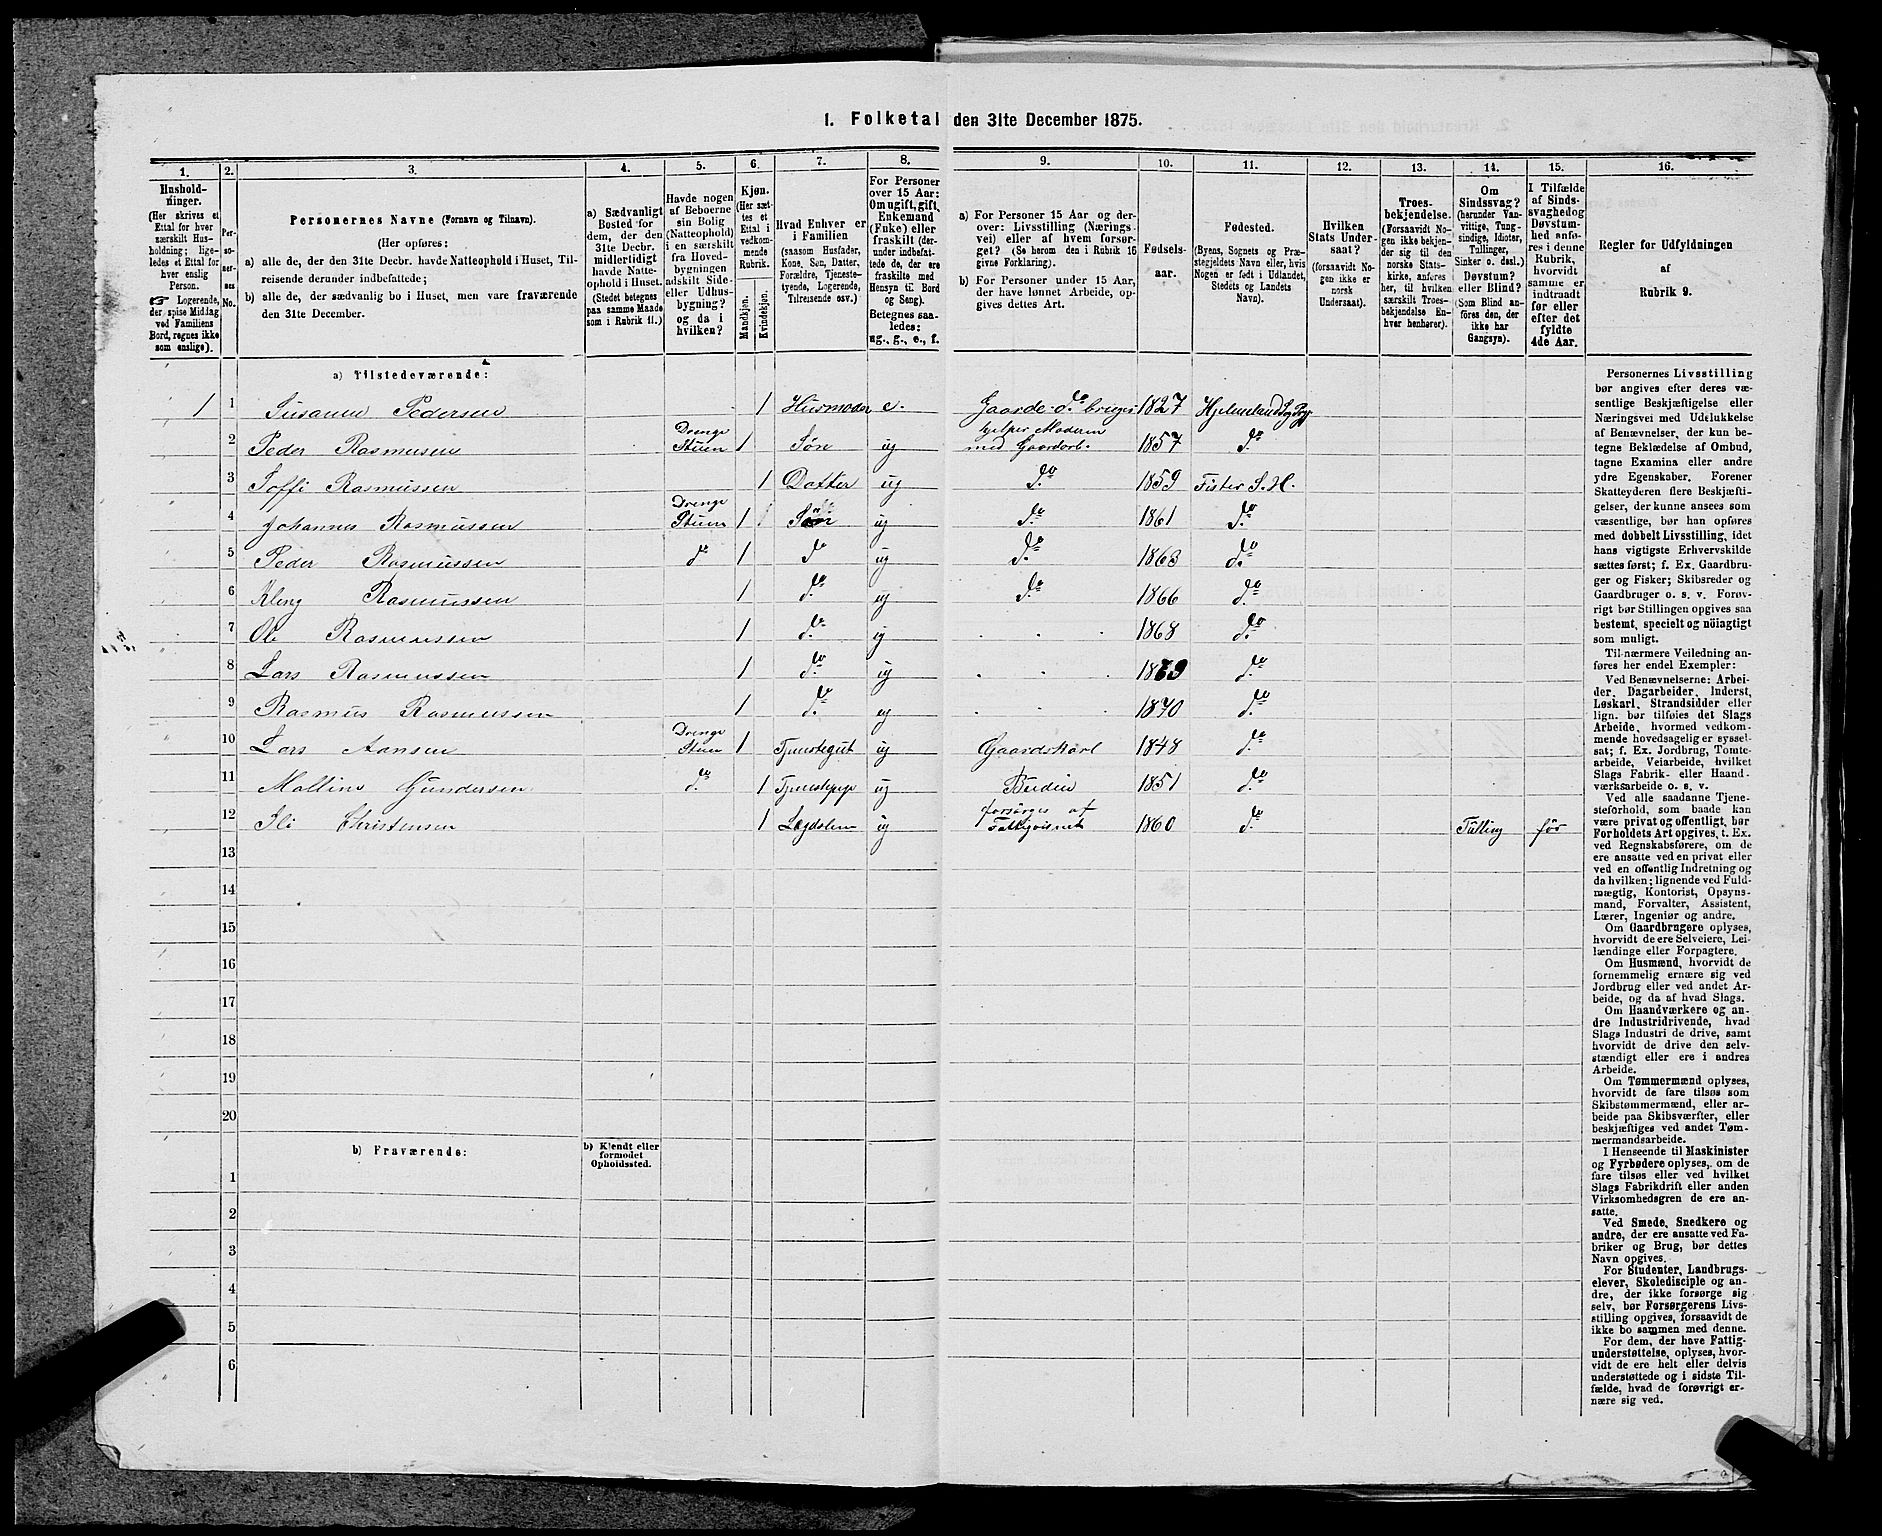 1. Folketal den 31te December 1875.
1.
2.
3.
4.
5.
6.
7.
8.
9.
10.
11.
12.
13.
14.
15.
16.
Husholdninger;
(Her skrives et
Ettal for hver
særskilt Husholdning;
ligeledes et Ettal for
hver enslig
Person.
☞ Logerende,
der spise Middag
ved Familiens
Bord, regnes ikke
som enslige).
Personernes
No.
Personernes Navne (Fornavn og Tilnavn).
(Her opføres:
a) alle de, der den 31te Decbr. havde Natteophold i Huset, Tilreisende derunder indbefattede;
b) alle de, der sædvanlig bo i Huset, men vare fraværende
den 31te December.
a) Sædvanligt
Bosted for
dem, der den
31te Decbr.
midlertidigt
havde Natteophold i Huset.
(Stedet betegnes
paa samme Maade
som i Rubrik 11.)
Havde nogen
af Beboerne
sin Bolig
(Natteophold)
i en særskilt
fra Hovedbygningen
adskilt Side-
eller Udhusbygning?
og da i
hvilken?
Kjøn.
(Her sættes et
Ettal i
vedkommende
Rubrik.
Mandkjøn.
Kvindekjøn.
Hvad Enhver er
i Familien
(saasom Husfader,
Kone, Søn, Datter,
Forældre, Tjenestetyende, Logerende,
Tilreisende osv.)
For Personer
over 15 Aar:
Om ugift, gift,
Enkemand
(Enke) eller
fraskilt (derunder indbefattede de, der ere
fraskilte med
Hensyn til Bord
og Seng).
Betegnes saaledes:
ug., g., e., f.
a) For Personer 15 Aar og derover: Livsstilling (Næringsvei) eller af hvem forsørget? (Se herom den i Rubrik 16
givne Forklaring).
b) For Personer under 15 Aar,
der have lønnet Arbeide, opgives dettes Art.
Fødselsaar.
Fødested.
(Byens, Sognets og Præstegjeldets Navn eller, hvis
Nogen er født i Udlandet,
Stedets og Landets
Navn).
Hvilken
Stats Undersaat?
(forsaavidt Nogen ikke er
norsk
Undersaat).
Troesbekjendelse.
(Forsaavidt Nogen ikke bekjender sig til den
norske Statskirke, anføres
her, til hvilken
særskilt Troesbekjendelse Enhver henhører).
Om
Sindssvag?
(herunder Vanvittige, Tungsindige, Idioter,
Tullinger,
Sinker o. desl.)
Døvstum?
eller Blind?
(Som Blind anføres den, der
ikke har
Gangsyn).
I Tilfælde
af Sindssvaghed og
Døvstumhed anføres i denne
Rubrik,
hvorvidt
samme er
indtraadt
før eller
efter det
fyldte
4de Aar.
Regler for Udfyldningen
af
Rubrik 9.
a) Tilstedeværende:
1 1 Susanne Pedersen 1 Husmoder e. Gaarde-do bruger 1827 Hjelmeland
2 Peder Rasmusen Drenge Stuen 1 Søn ug hjelper Moderen med Gaardarb. 1857 do
3 Soffi Rasmussen 1 Datter ug do 1859 Fister S. H.
4 Johannes Rasmussen Drenge Stuen 1 Søn ug do 1861 do
5 Peder Rasmussen do 1 do ug do 1863 do
6 Rasmussen 1 do ug do 1866 do
7 Ole Rasmussen 1 do ug 1868 do
8 Lars Rasmussen 1 do ug do
9 Rasmus Rasmussen 1 do ug 1870 do
10 Lars Aansen Drenge Stuen 1 Tjenestegut ug Gaardskarl 1848 do
11 Gundersen do 1 Tjenestepige ug Budeie 1851 do
12 Christensen 1 Lægdslem ug forsørges af Fattigvæsnet 1860 do Tulling før
13
14
15
16
17
18
19
20
b) Fraværende:
b) Kjendt eller
formodet
Opholdssted.
1
2
3
4
5
6
Personernes Livsstilling
bør angives efter deres væsentlige Beskjæftigelse eller
Næringsvei med Udelukkelse
af Benævnelser, der kun betegne Beklædelse af Ombud,
tagne Examina eller andre
ydre Egenskaber. Forener
Skatteyderen flere Beskjæftigelser, der kunne ansees som
væsentlige, bør han opføres
med dobbelt Livsstilling, idet
hans vigtigste Erhvervskilde
sættes først; f. Ex. Gaardbruger og Fisker; Skibsreder og
Gaardbruger o. s. v. Forøvrigt bør Stillingen opgives saa
bestemt, specielt og nöiagtigt
som muligt.
Til nærmere Veiledning anføres her endel Exempler:
Ved Benævnelserne: Arbeider, Dagarbeider, Inderst,
Løskarl, Strandsidder eller
lign. bør tilføies det Slags
Arbeide, hvormed vedkommende hovedsagelig er sysselsat; f. Ex. Jordbrug, Tomtearbeide, Veiarbeide, hvilket
Slags Fabrik- eller Haandværksarbeide o. s. v.
Ved alle saadanne Tjenesteforhold, som baade kan
være privat og offentligt, bør
Forholdets Art opgives, t. Ex.
ved Regnskabsførere, om de
ere ansatte ved en privat eller
ved en offentlig Indretning og
da hvilken; lignende ved Fuldmægtig, Kontorist, Opsynsmand, Forvalter, Assistent,
Lærer, Ingeniør og andre.
Om Gaardbrugere oplyses,
hvorvidt de ere Selveiere, Leilændinge eller Forpagtere.
Om Husmænd, hvorvidt de
fornemmelig ernære sig ved
Jordbrug eller ved andet Arbeide, og da af hvad Slags.
Om Haandværkere og andre Industridrivende, hvad
Slags Industri de drive, samt
hvorvidt de drive den selvstændigt eller ere i andres
Arbeide.
Om Tømmermænd oplyses,
hvorvidt de fare tilsøs som
Skibstømmermænd, eller arbeide paa Skibsværfter, eller
beskjæftiges ved andet Tømmermandsarbeide.
I Henseende til Maskinister
og Fyrbødere oplyses, om de
fare tilsøs eller ved hvilket
Slags Fabrikdrift eller anden
Virksomhedsgren de ere ansatte.
Ved Smede, Snedkere og
andre, der ere ansatte ved Fabriker og Brug, bør dettes
Navn opgives.
For Studenter, Landbrugselever, Skoledisciple og andre, der ikke forsørge sig
selv, bør Forsørgerens Livsstilling opgives, forsaavidt de
ikke bo sammen med denne.
For dem, der have Fattigunderstøttelse, oplyses, hvorvidt de ere helt eller delvis
understøttede og i sidste Tilfælde, hvad de forøvrigt ernære sig ved.